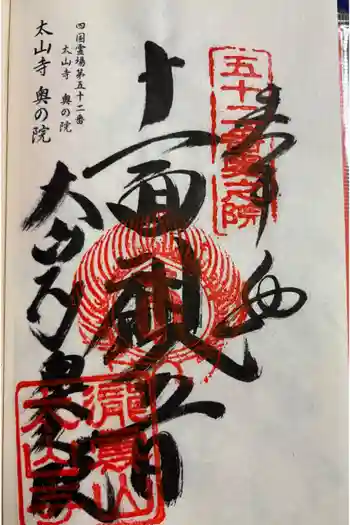 奉拝
五十二番奥之院
十一面観音
太山寺奥之院
瀧雲山
太山寺
四国霊場第五十二番
太山寺 奥の院
太山寺 奥の院